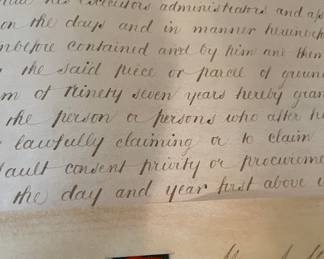 his executors administrators and
on the days and in manner
contained and by him and them
the said piece or parcel of
of Ninety seven years hereby
the person or persons who after
lawfully claiming or to claim
consent privity or
the day and year first above